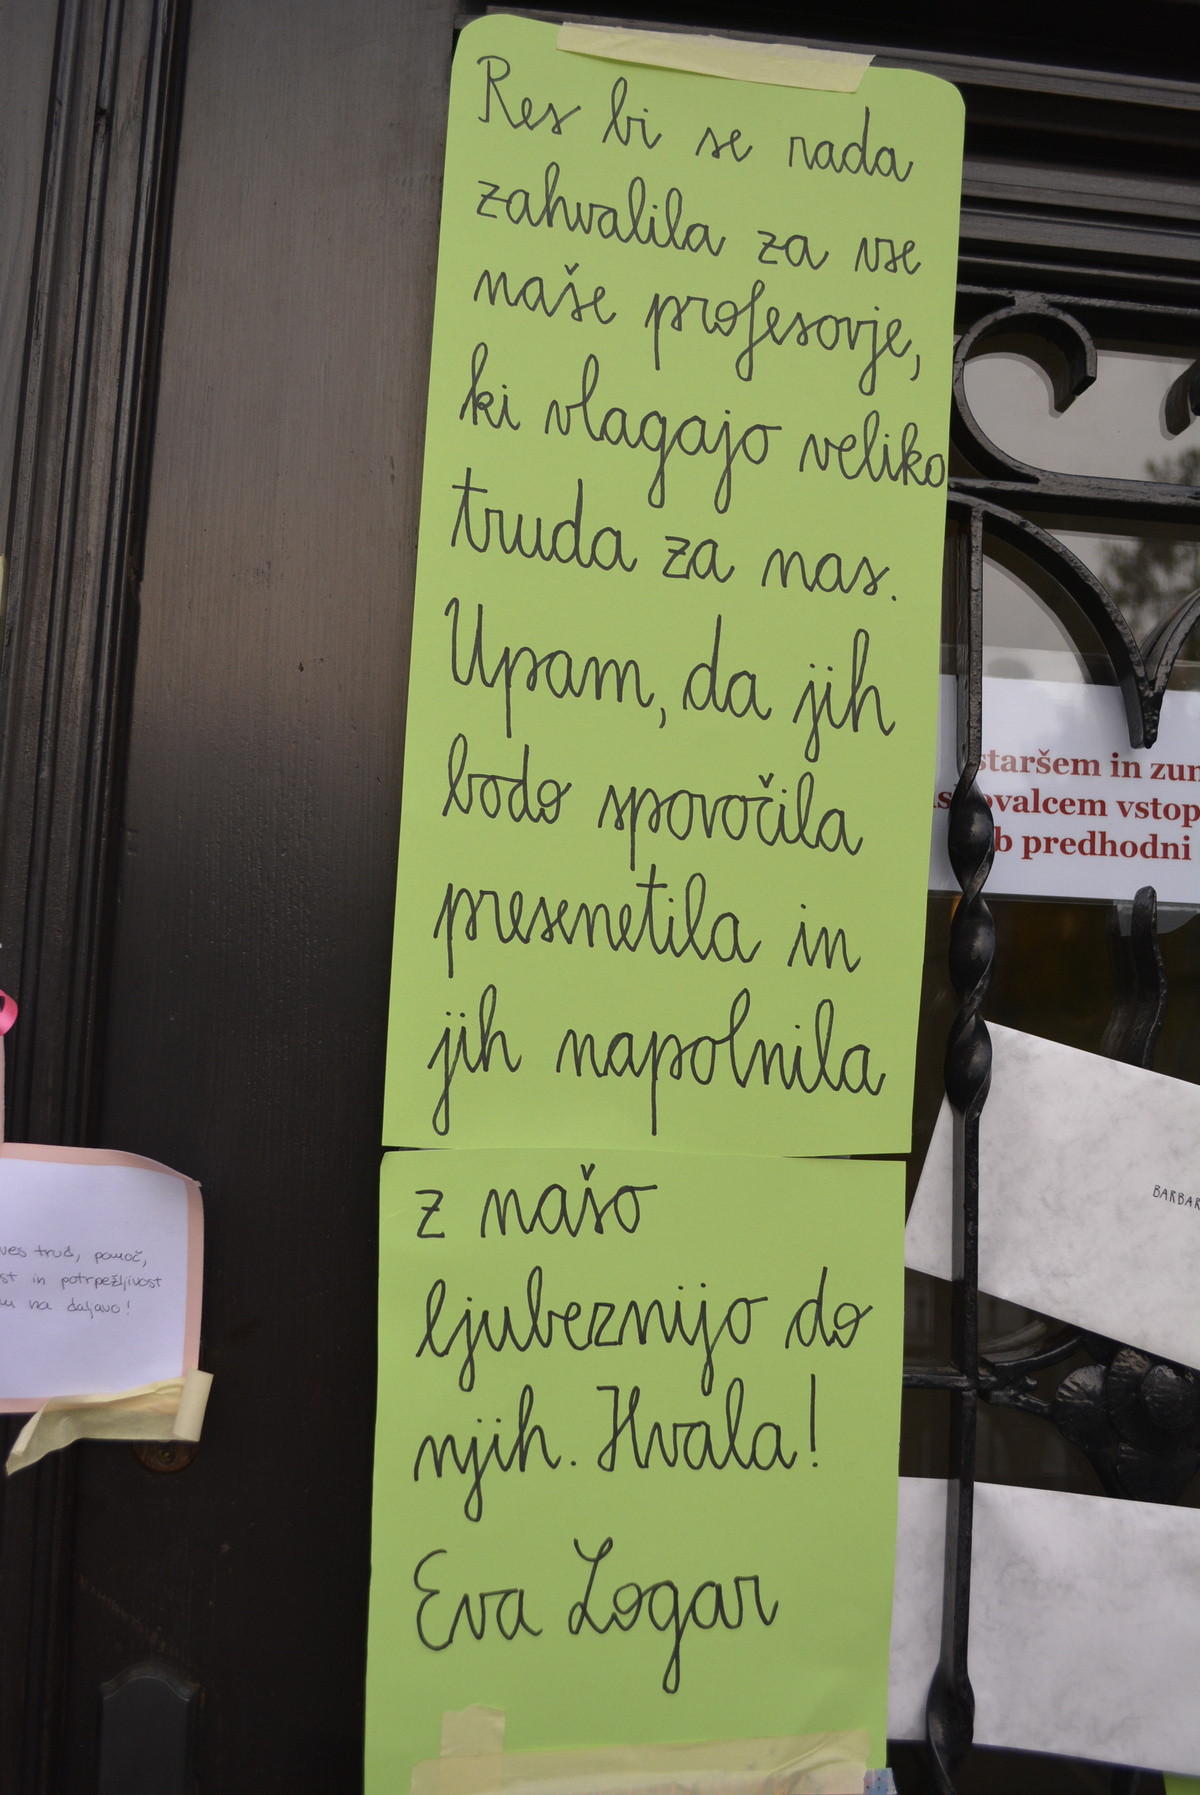 Res bi se rada
zahvalila za vse
naše profesorje,
ki vlagajo veliko
truda za nas.
Upam, da jih
bodo sporočila
presenetila in
jih napolnila
z našo
ljubeznijo do
njih. Hvala!
Eva Logar
staršem in zun
ovalcem vstop
b predhodni
BARBAR
ves trud, pomoč,
st in potrpežljivost
na daljavo!